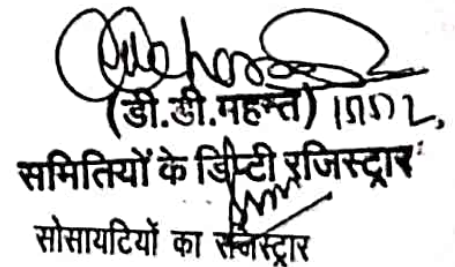 (डी.डी.महन्त)
समितियों के डिप्टी रजिस्ट्रार
सोसायटियों का रजिस्ट्रार